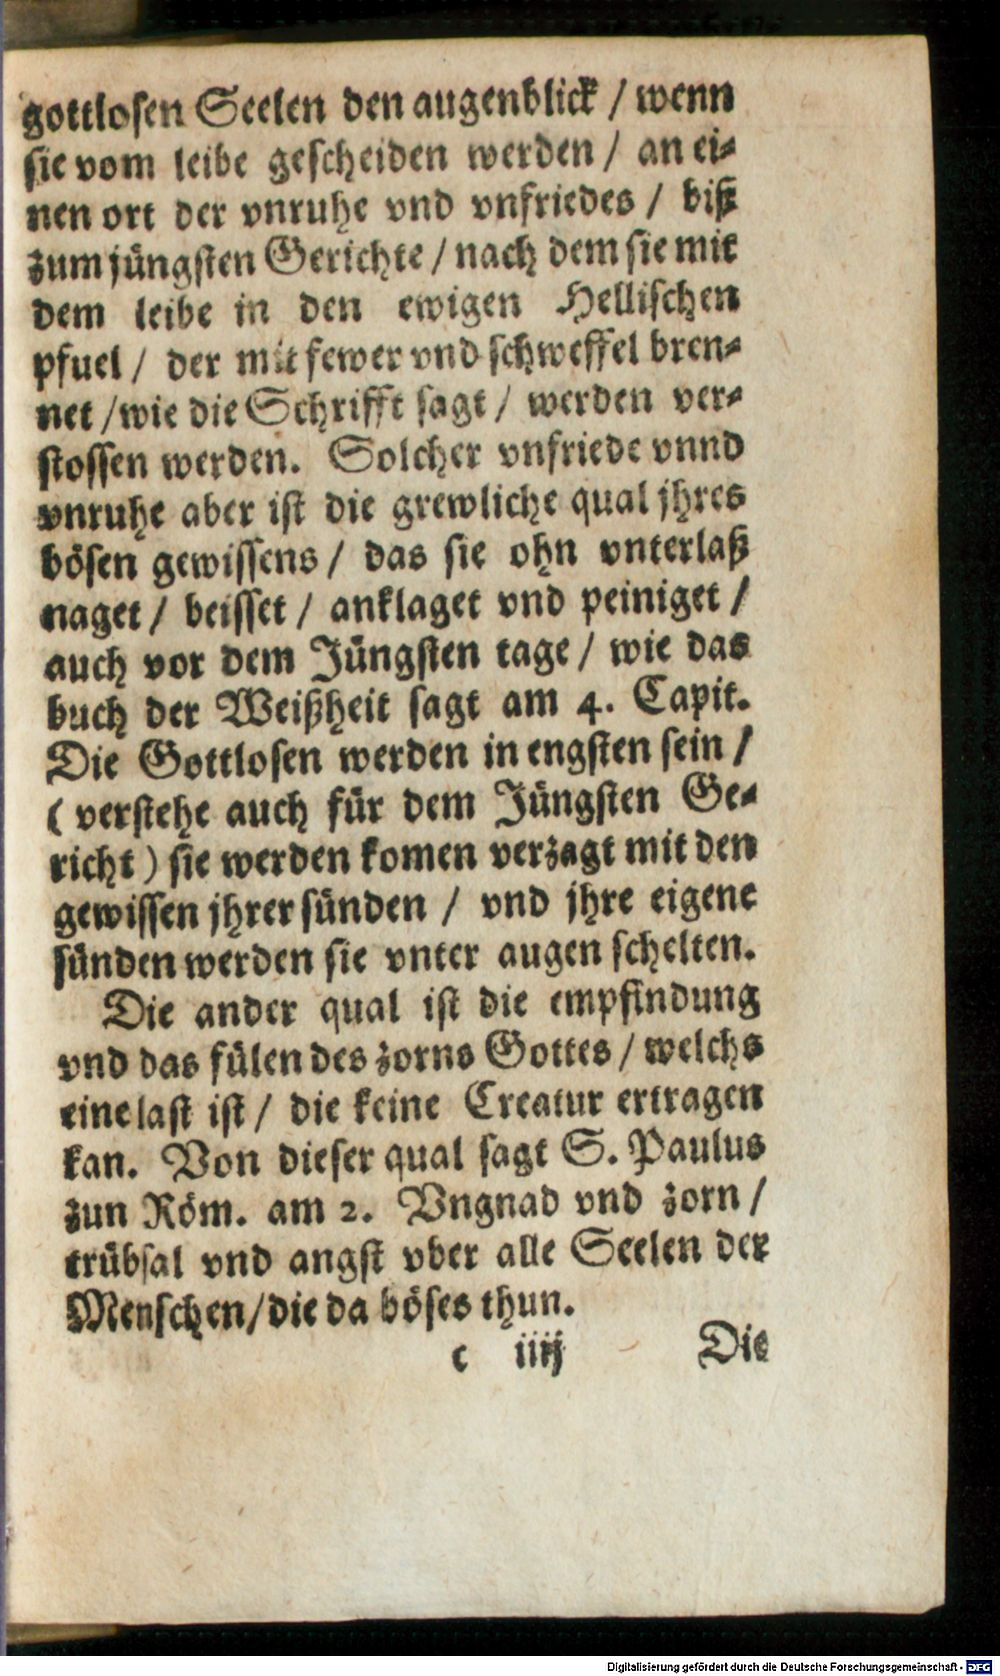 gottlosen Seelen den augenblick / wenn
sie vom leibe gescheiden werden / an ei-
nen ort der vnruhe vnd vnfriedes / biß
zum jüngsten Gerichte / nach dem sie mit
dem leibe in den ewigen Hellischen
pfuel / der mit fewer vnd schweffel bren-
net / wie die Schrifft sagt / werden ver-
stossen werden. Solcher vnfriede vnnd
vnruhe aber ist die grewliche qual jhres
bösen gewissens / das sie ohn vnterlaß
naget / beisset / anklaget vnd peiniget /
auch vor dem Jüngsten tage / wie das
buch der Weißheit sagt am 4. Capit.
Die Gottlosen werden in engsten sein /
( verstehe auch für dem Jüngsten Ge-
richt ) sie werden komen verzagt mit den
gewissen jhrer sünden / vnd jhre eigene
sünden werden sie vnter augen schelten.
Die ander qual ist die empfindung
vnd das fülen des zorns Gottes / welchs
eine last ist / die keine Creatur ertragen
kan. Von dieser qual sagt S. Paulus
zun Röm. am 2. Vngnad vnd zorn /
trübsal vnd angst vber alle Seelen der
Menschen / die da böses thun.
c iiij Die
Digitalisierung gefördert durch die Deutsche Forschungsgemeinschaft - DFG